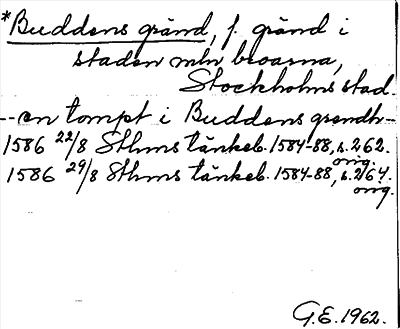 *Buddens gränd, f. gränd i
staden mln broarna,
Stockholms stad.
--en tompt i Buddens grendh--
1586 22/8 Sthms tänkeb. 1584-88, s. 262.
orig.
1586 29/8 Sthms tänkeb. 1584-88, s. 264.
orig.
G.E. 1962.